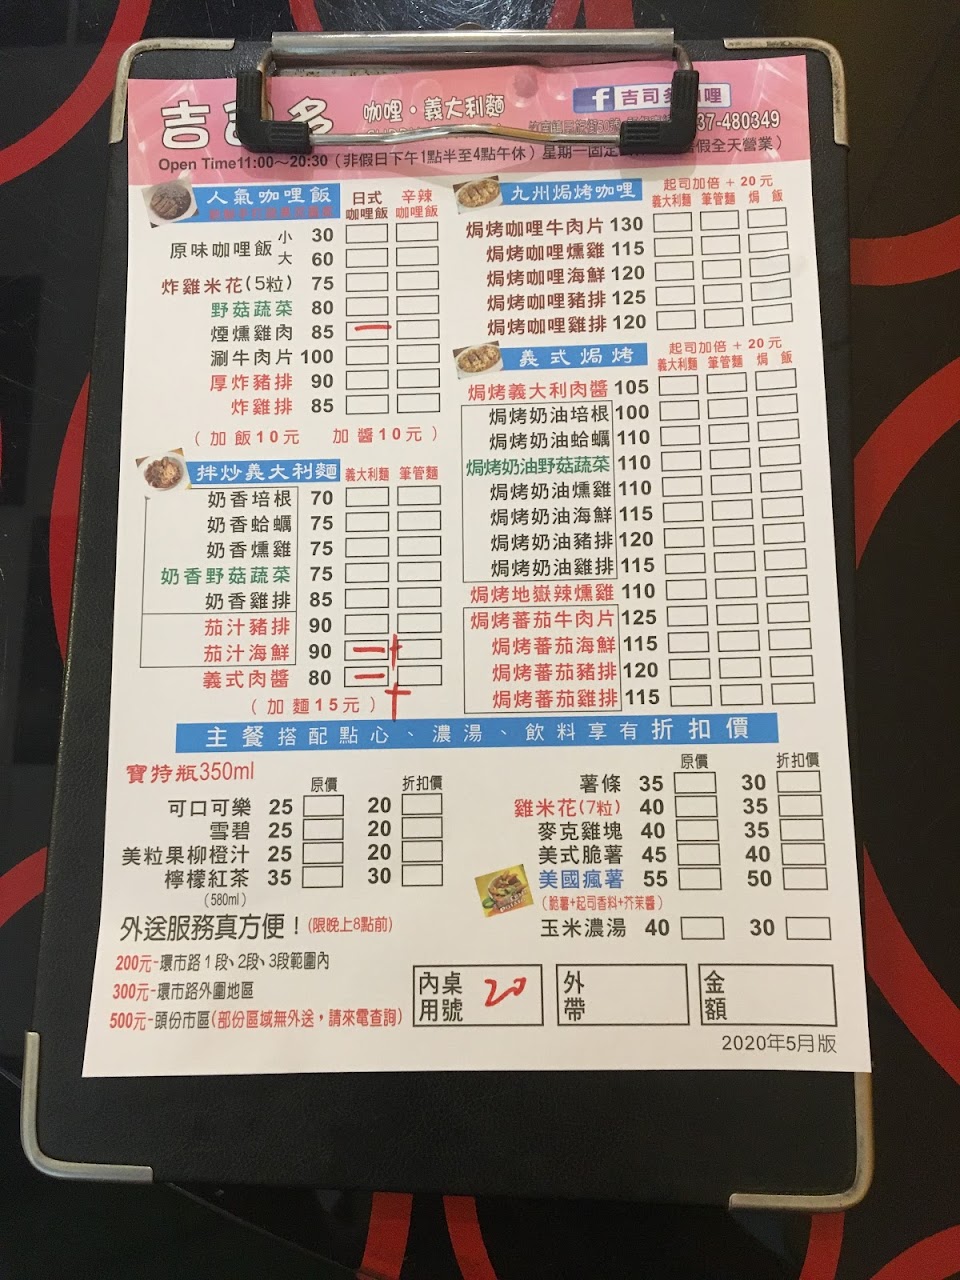 吉司多 咖哩·義大利麵 f 吉司多咖哩
37-480349
Open Time11:00～20:30（非假日下午1點半至4點午休）星期一固定 假全天營業）
人氣咖哩飯 日式咖哩飯 辛辣咖哩飯
原味咖哩飯 小 30
大 60
炸雞米花(5粒) 75
野菇蔬菜 80
煙燻雞肉 85 一
涮牛肉片 100
厚炸豬排 90
炸雞排 85
（加飯10元 加醬10元）
拌炒義大利麵 義大利麵 筆管麵
奶香培根 70
奶香蛤蠣 75
奶香燻雞 75
奶香野菇蔬菜 75
奶香雞排 85
茄汁豬排 90
茄汁海鮮 90 一 +
義式肉醬 80 一 +
（加麵15元）
九州焗烤咖哩 起司加倍 + 20元
義大利麵 筆管麵 焗飯
焗烤咖哩牛肉片 130
焗烤咖哩燻雞 115
焗烤咖哩海鮮 120
焗烤咖哩豬排 125
焗烤咖哩雞排 120
義式焗烤 起司加倍 + 20元
義大利麵 筆管麵 焗飯
焗烤義大利肉醬 105
焗烤奶油培根 100
焗烤奶油蛤蠣 110
焗烤奶油野菇蔬菜 110
焗烤奶油燻雞 110
焗烤奶油海鮮 115
焗烤奶油豬排 120
焗烤奶油雞排 115
焗烤地嶽辣燻雞 110
焗烤蕃茄牛肉片 125
焗烤蕃茄海鮮 115
焗烤蕃茄豬排 120
焗烤蕃茄雞排 115
主餐搭配點心、濃湯、飲料享有折扣價
寶特瓶350ml 原價 折扣價
可口可樂 25 20
雪碧 25 20
美粒果柳橙汁 25 20
檸檬紅茶 35 30
(580ml)
原價 折扣價
薯條 35 30
雞米花(7粒) 40 35
麥克雞塊 40 35
美式脆薯 45 40
美國瘋薯 55 50
（脆薯+起司香料+芥茉醬）
玉米濃湯 40 30
外送服務真方便！(限晚上8點前)
200元-環市路1段、2段、3段範圍內
300元-環市路外圍地區
500元-頭份市區(部份區域無外送，請來電查詢)
內用 桌號 20
外帶
金額
2020年5月版